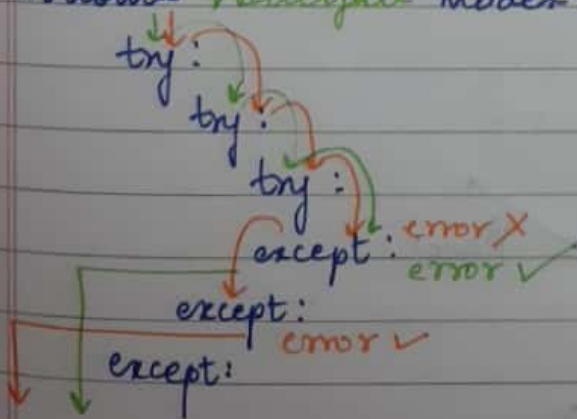 try :
try :
try :
except : error X
error ✓
except :
error ✓
except :